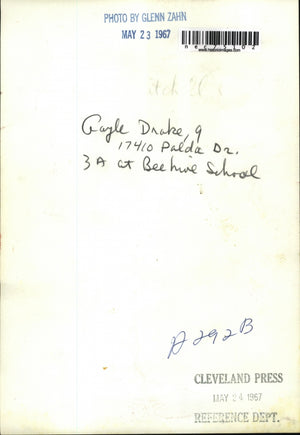 PHOTO BY GLENN ZAHN
MAY 23 1967
Gayle Drake, 9
17410 Palda Dr.
3A at Beehive School
A292B
CLEVELAND PRESS
MAY 24 1967
REFERENCE DEPT.